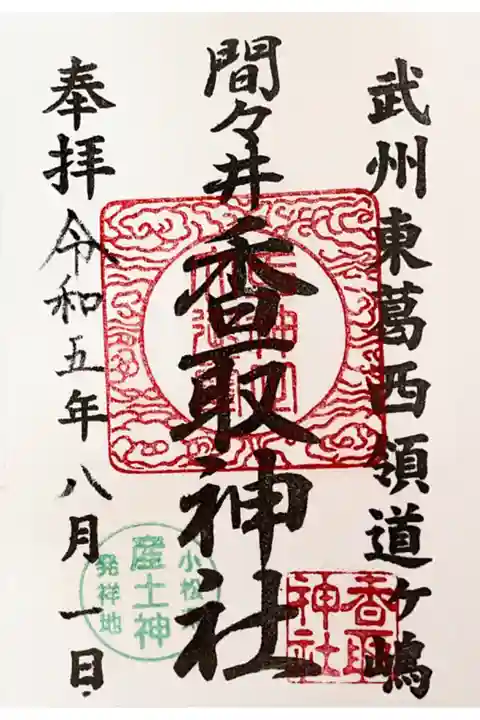 武州東葛西領道ヶ嶋
間々井香取神社
奉拝令和五年八月一日
香取
神社
産土神
発祥地